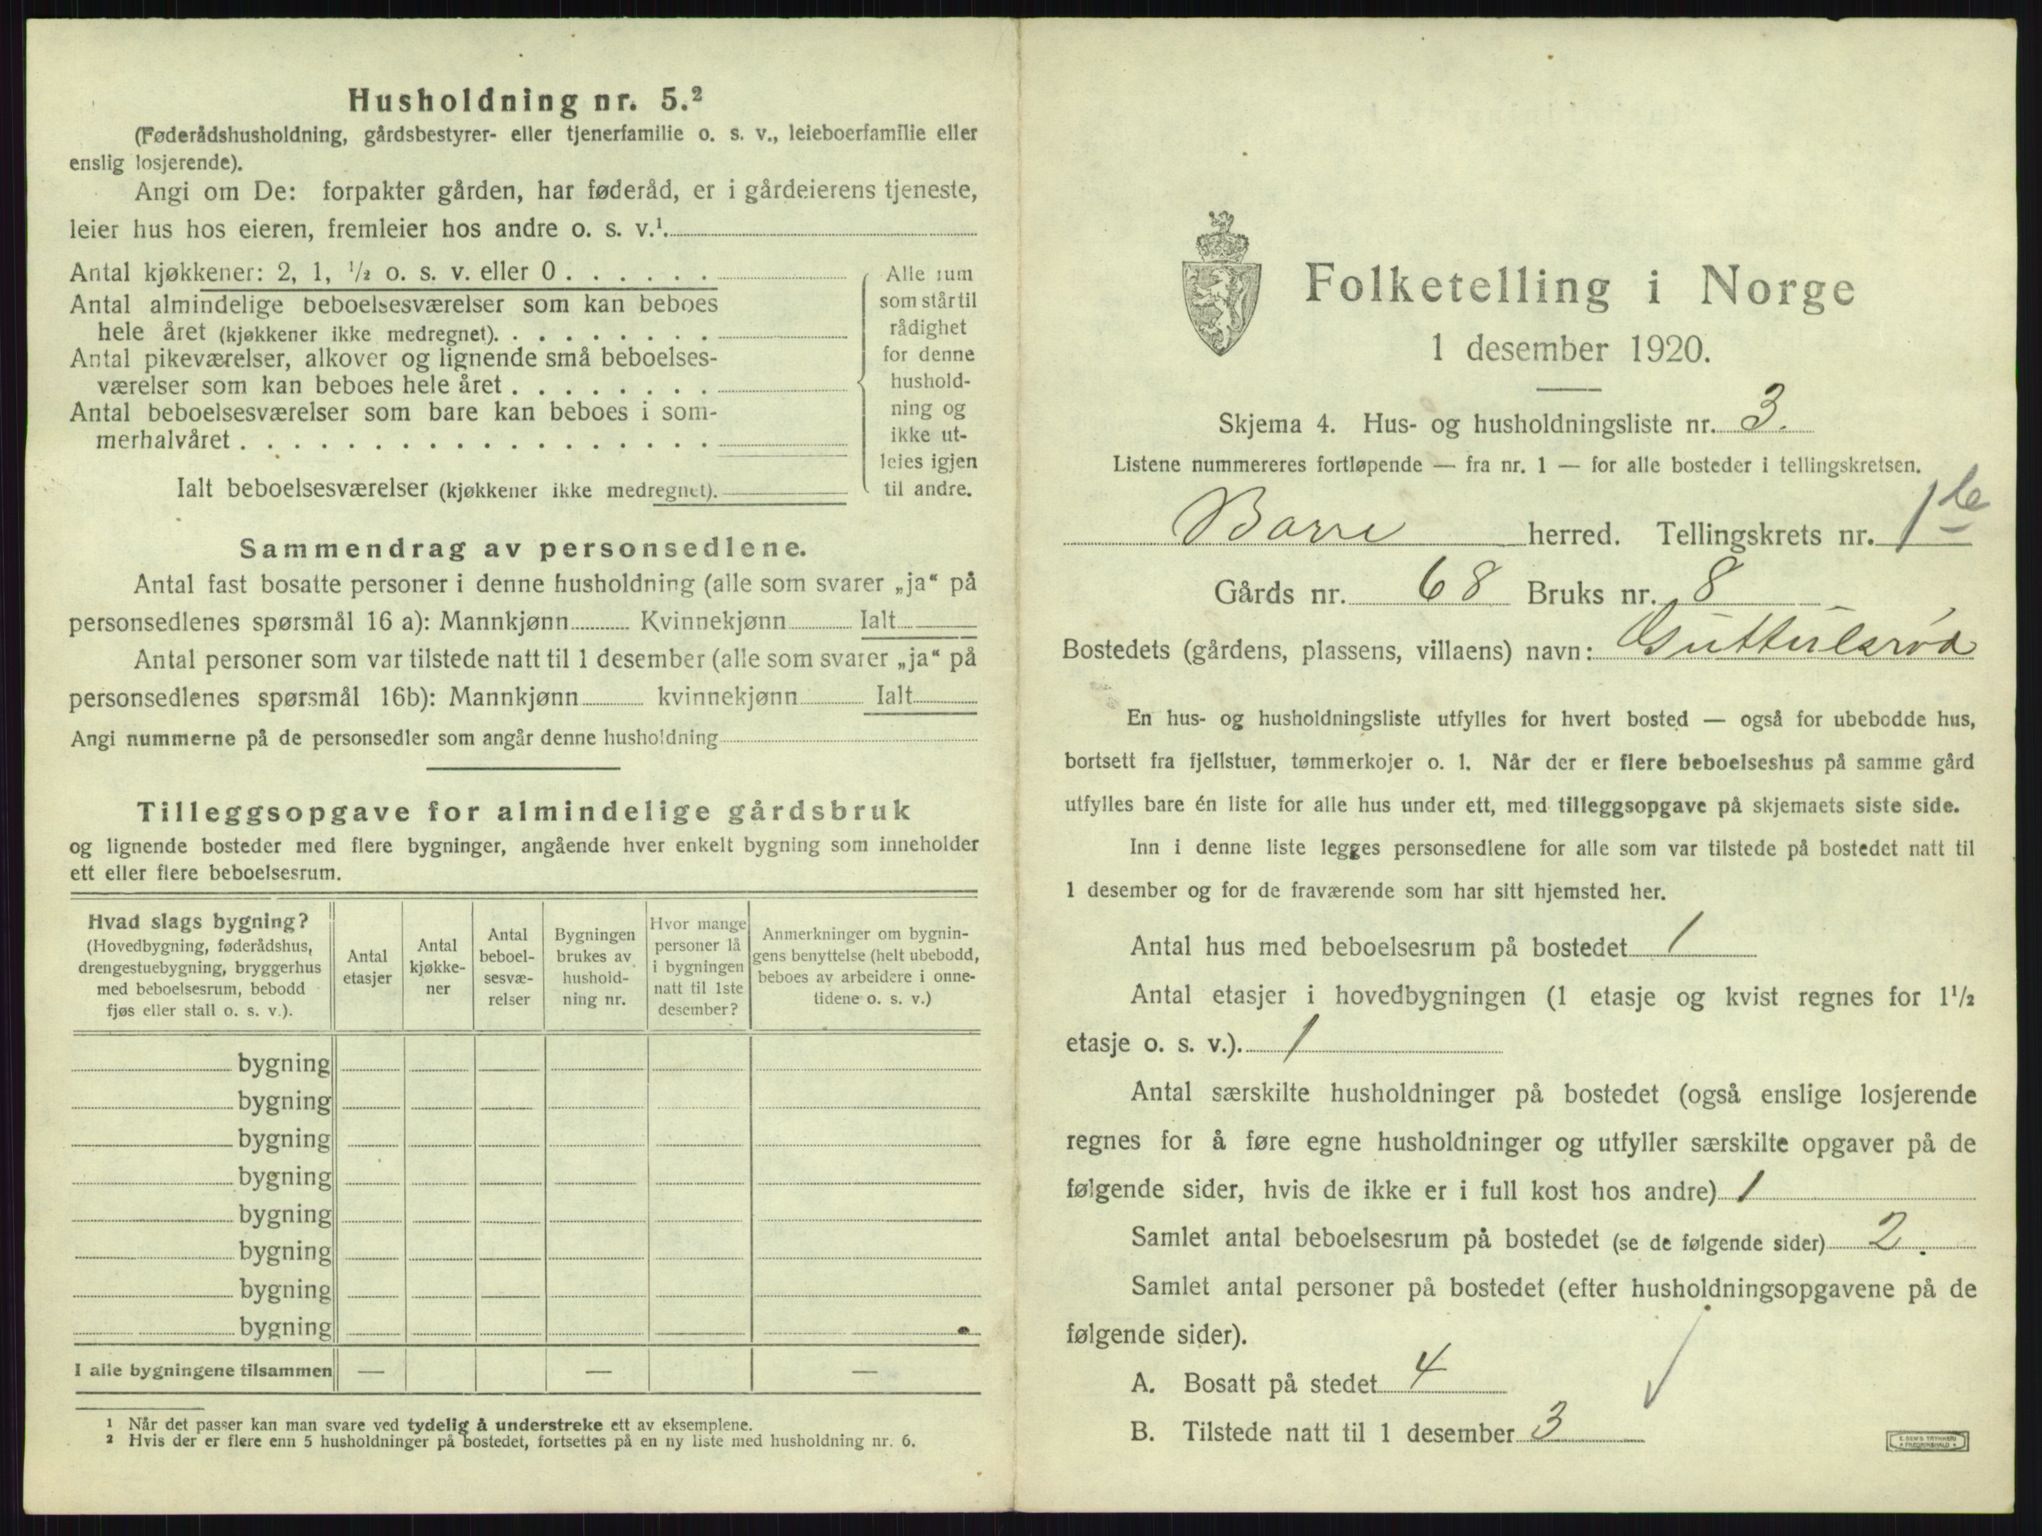 Husholdning nr. 5.²
(Føderådshusholdning, gårdsbestyrer- eller tjenerfamilie o. s. v., leieboerfamilie eller
enslig losjerende).
Angi om De: forpakter gården, har føderåd, er i gårdeierens tjeneste,
leier hus hos eieren, fremleier hos andre o. s. v.¹.
Antal kjøkkener: 2, 1, ½ o. s. v. eller 0 . . . . . .
Antal almindelige beboelsesværelser som kan beboes
hele året (kjøkkener ikke medregnet). . . . . . . . .
Antal pikeværelser, alkover og lignende små beboelses-
værelser som kan beboes hele året . . . . . . . .
Antal beboelsesværelser som bare kan beboes i som-
merhalvåret . . . . . . . . . . . . . . . . . .
Ialt beboelsesværelser (kjøkkener ikke medregnet).
Alle rum
som står til
rådighet
for denne
hushold-
ning og
ikke ut-
leies igjen
til andre.
Sammendrag av personsedlene.
Antal fast bosatte personer i denne husholdning (alle som svarer „ja“ på
personsedlenes spørsmål 16 a): Mannkjønn Kvinnekjønn Ialt
Antal personer som var tilstede natt til 1 desember (alle som svarer „ja“ på
personsedlenes spørsmål 16b): Mannkjønn kvinnekjønn Ialt
Angi nummerne på de personsedler som angår denne husholdning
Tilleggsopgave for almindelige gårdsbruk
og lignende bosteder med flere bygninger, angående hver enkelt bygning som inneholder
ett eller flere beboelsesrum.
Hvad slags bygning?
(Hovedbygning, føderådshus,
drengestuebygning, bryggerhus
med beboelsesrum, bebodd
fjøs eller stall o. s. v.).
Antal
etasjer
Antal
kjøkke-
ner
Antal
beboel-
sesvæ-
relser
Bygningen
brukes av
hushold-
ning nr.
Hvor mange
personer lå
i bygningen
natt til 1ste
desember?
Anmerkninger om bygnin-
gens benyttelse (helt ubebodd,
beboes av arbeidere i onne-
tidene o. s. v.)
bygning
bygning
bygning
bygning
bygning
bygning
bygning
bygning
I alle bygningene tilsammen — — —
¹ Når det passer kan man svare ved tydelig å understreke ett av eksemplene.
² Hvis der er flere enn 5 husholdninger på bostedet, fortsettes på en ny liste med husholdning nr. 6.
Folketelling i Norge
1 desember 1920.
Skjema 4. Hus- og husholdningsliste nr. 3.
Listene nummereres fortløpende — fra nr. 1 — for alle bosteder i tellingskretsen.
Borre herred. Tellingskrets nr. 1te
Gårds nr. 68 Bruks nr. 8
Bostedets (gårdens, plassens, villaens) navn: Guttulsrød
En hus- og husholdningsliste utfylles for hvert bosted — også for ubebodde hus,
bortsett fra fjellstuer, tømmerkojer o. l. Når der er flere beboelseshus på samme gård
utfylles bare én liste for alle hus under ett, med tilleggsopgave på skjemaets siste side.
Inn i denne liste legges personsedlene for alle som var tilstede på bostedet natt til
1 desember og for de fraværende som har sitt hjemsted her.
Antal hus med beboelsesrum på bostedet 1
Antal etasjer i hovedbygningen (1 etasje og kvist regnes for 1½
etasje o. s. v.). 1
Antal særskilte husholdninger på bostedet (også enslige losjerende
regnes for å føre egne husholdninger og utfyller særskilte opgaver på de
følgende sider, hvis de ikke er i full kost hos andre) 1
Samlet antal beboelsesrum på bostedet (se de følgende sider) 2.
Samlet antal personer på bostedet (efter husholdningsopgavene på de
følgende sider).
A. Bosatt på stedet 4
B. Tilstede natt til 1 desember 3